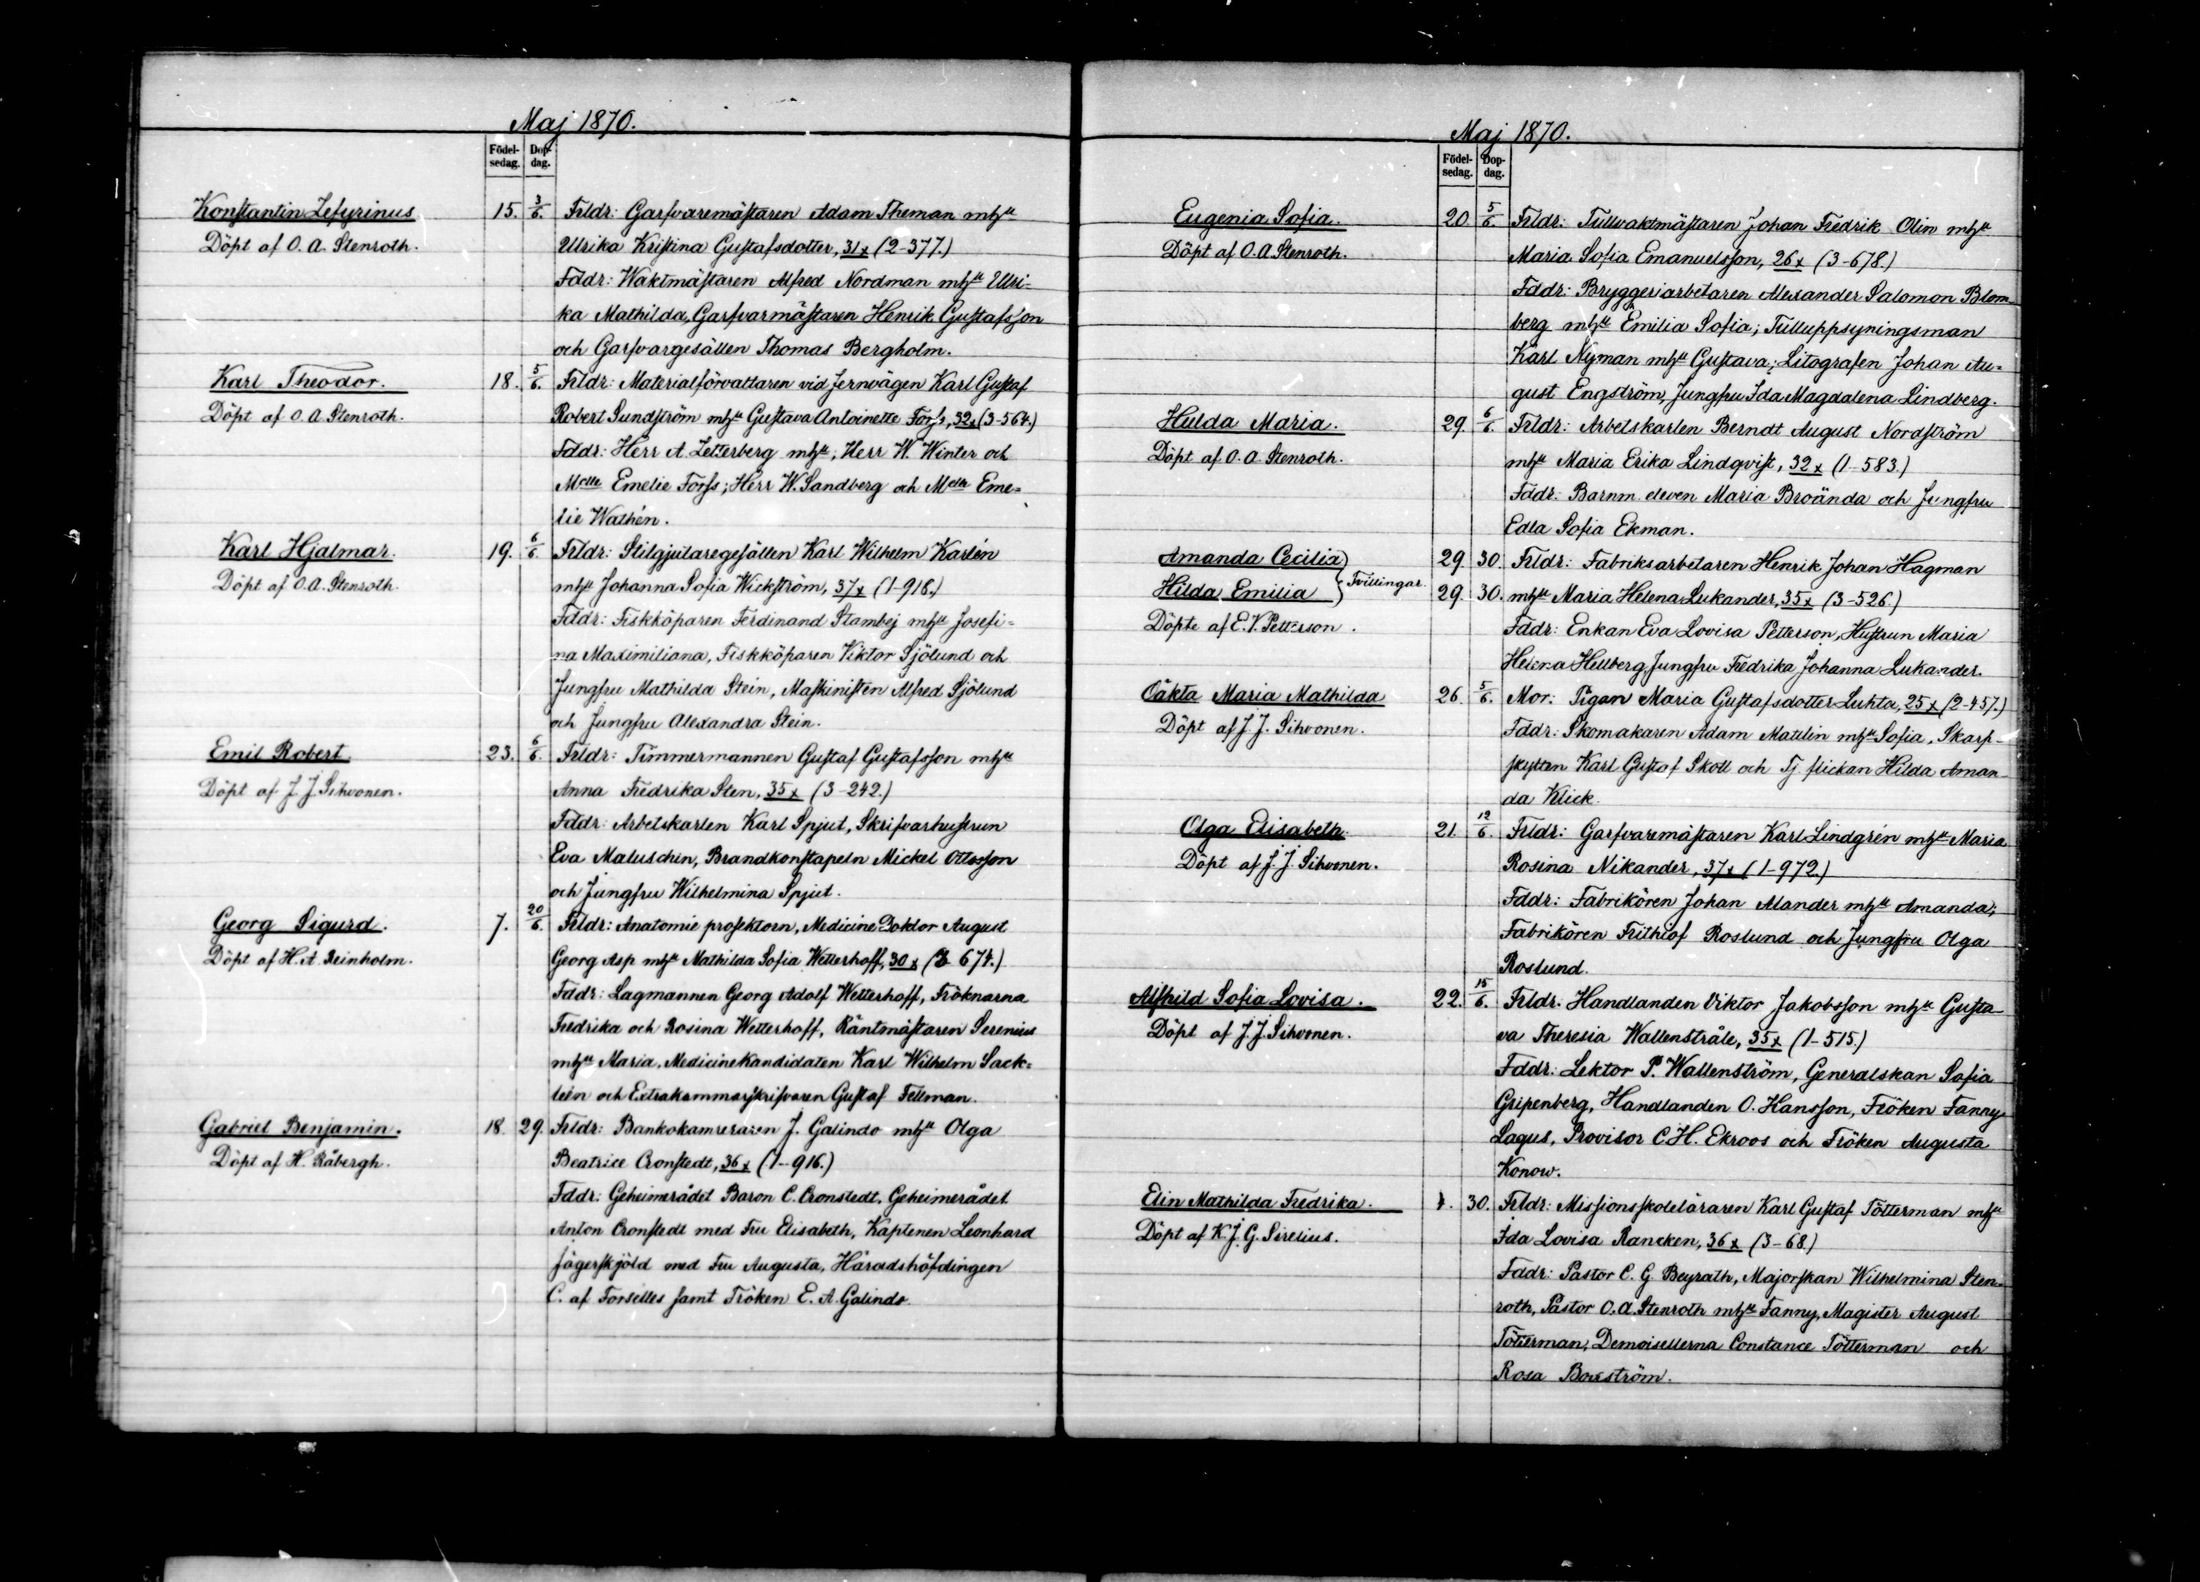 Maj 1870.
Födel- Dop-
sedag. dag.
Konstantin Zefyrinus 15. 3/6. Frldr: Garfvaremästaren Adam Theman mhu
Döpt af O. A. Stenroth. Ulrika Kristina Gustafsdotter, 31 x (2-377.)
Fddr: Waktmästaren Alfred Nordman mhu Ulri-
ka Mathilda, Garfvarmästaren Henrik Gustafsson
och Garfvargesällen Thomas Bergholm.
Karl Theodor. 18. 5/6. Frldr: Materialförvaltaren vid Jernvägen Karl Gustaf
Döpt af O. A. Stenroth. Robert Sundström mhu Gustava Antoinette Forss, 32 x (3-564.)
Fddr: Herr A. Zetterberg mhu; Herr W. Winter och
Melle Emelie Forss; Herr W. Sandberg och Melle Eme-
lie Wathén.
Karl Hjalmar. 19. 6/6. Frldr: Stilgjutaregesällen Karl Wilhelm Karlén
Döpt af O. A. Stenroth. mhu Johanna Sofia Wickström, 37 x (1-918.)
Fddr: Fiskköparen Ferdinand Stambej mhu Josefi-
na Maximiliana, Fiskköparen Viktor Sjölund och
Jungfru Mathilda Stein, Maskinisten Alfred Sjölund
och Jungfru Alexandra Stein.
Emil Robert. 23. 6/6. Frldr: Timmermannen Gustaf Gustafsson mhu
Döpt af J. J. Sihvonen. Anna Fredrika Sten, 35 x (3-242.)
Fddr: Arbetskarlen Karl Spjut, Skrifvarhustrun
Eva Maluschin, Brandkonstapeln Mickel Ottosson
och Jungfru Wilhelmina Spjut.
Georg Sigurd. 7. 20/6. Frldr: Anatomie prosektorn, Medicine Doktor August
Döpt af H. A. Reinholm. Georg Asp mhu Mathilda Sofia Wetterhoff, 30 x (3-674.)
Fddr: Lagmannen Georg Adolf Wetterhoff, Fröknarna
Fredrika och Rosina Wetterhoff, Räntmästaren Serenius
mhu Maria, Medicine Kandidaten Karl Wilhelm Sack-
léen och Extrakammarskrifvaren Gustaf Tellman.
Gabriel Benjamin. 18. 29. Frldr: Bankokamreraren J. Galindo mhu Olga
Döpt af H. Råbergh. Beatrice Cronstedt, 36 x (1-916.)
Fddr: Geheimerådet Baron C. Cronstedt, Geheimerådet
Anton Cronstedt med Fru Elisabeth, Kaptenen Leonhard
Jägerskjöld med Fru Augusta, Häradshöfdingen
C. af Forselles samt Fröken E. A. Galindo.
Maj 1870.
Födel- Dop-
sedag. dag.
Eugenia Sofia. 20 5/6. Frldr: Tullvaktmästaren Johan Fredrik Olin mhu
Döpt af O. A. Stenroth. Maria Sofia Emanuelsson, 26 x (3-678.)
Fddr: Bryggeriarbetaren Alexander Salomon Blom
berg mhu Emilia Sofia; Tulluppsyningsman
Karl Nyman mhu Gustava; Litografen Johan Au-
gust Engström, Jungfru Ida Magdalena Lindberg.
Hulda Maria. 29. 6/6. Frldr: Arbetskarlen Berndt August Nordström
Döpt af O. A. Stenroth. mhu Maria Erika Lindqvist, 32 x (1-583.)
Fddr: Barnm. eleven Maria Broända och Jungfru
Edla Sofia Ekman.
Amanda Cecilia 29. 30. Frldr: Fabriksarbetaren Henrik Johan Hagman
Hilda Emilia } Tvillingar. 29. 30. mhu Maria Helena Lukander, 35 x (3-526.)
Döpte af E. V. Petterson. Fddr: Enkan Eva Lovisa Petterson, Hustrun Maria
Helena Hellberg, Jungfru Fredrika Johanna Lukander.
Oäkta Maria Mathilda 26. 5/6. Mor: Pigan Maria Gustafsdotter Luhta, 25 x (2-457.)
Döpt af J. J. Sihvonen. Fddr: Skomakaren Adam Matilin mhu Sofia, Skarp-
skytten Karl Gustaf Skott och Tj. flickan Hilda Aman-
da Klick.
Olga Elisabeth. 21. 12/6. Frldr: Garfvaremästaren Karl Lindgrén mhu Maria
Döpt af J. J. Sihvonen. Rosina Nikander, 37 x (1-972.)
Fddr: Fabrikören Johan Alander mhu Amanda;
Fabrikören Frithiof Roslund och Jungfru Olga
Roslund.
Alfhild Sofia Lovisa. 22. 15/6. Frldr: Handlanden Viktor Jakobsson mhu Gusta-
Döpt af J. J. Sihvonen. va Theresia Wallenstråle, 35 x (1-515.)
Fddr: Lektor P. Wallenström, Generalskan Sofia
Gripenberg, Handlanden O. Hansson, Fröken Fanny
Lagus, Provisor C. H. Ekroos och Fröken Augusta
Konow.
Elin Mathilda Fredrika. 30. Frldr: Missionsskoleläraren Karl Gustaf Tötterman mhu
Döpt af K. J. G. Sirelius. Ida Lovisa Rancken, 36 x (3-68.)
Fddr: Pastor C. G. Beyrath, Majorskan Wilhelmina Sten-
roth, Pastor O. A. Stenroth mhu Fanny, Magister August
Tötterman, Demoisellerna Constance Tötterman och
Rosa Boxström.